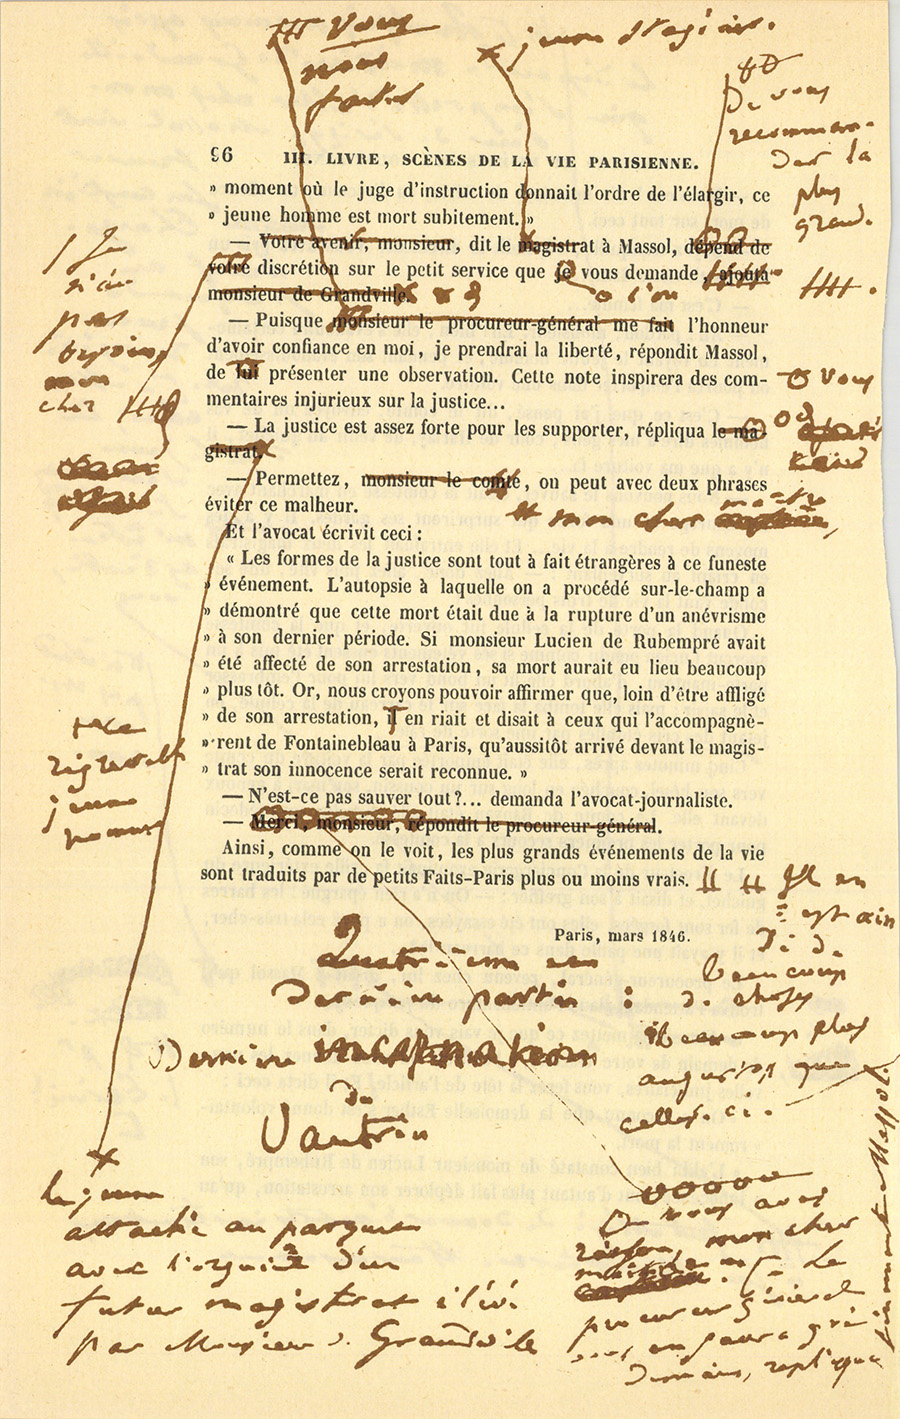 Vous
nous
faites
x jeune stagiaire.
De vous
recomman-
der la
plus
grande
96 III. LIVRE, SCÈNES DE LA VIE PARISIENNE.
» moment où le juge d'instruction donnait l'ordre de l'élargir, ce
» jeune homme est mort subitement. »
— Votre avenir, monsieur, dit le magistrat à Massol, dépend de
votre discrétion sur le petit service que je vous demande, ajouta
monsieur de Grandville.
o l'on
— Puisque monsieur le procureur-général me fait l'honneur
d'avoir confiance en moi, je prendrai la liberté, répondit Massol,
de lui présenter une observation. Cette note inspirera des com-
vous
mentaires injurieux sur la justice...
— La justice est assez forte pour les supporter, répliqua le ma-
gistrat.
— Permettez, monsieur le comte, on peut avec deux phrases
éviter ce malheur.
mon cher maître,
Et l'avocat écrivit ceci :
« Les formes de la justice sont tout à fait étrangères à ce funeste
» événement. L'autopsie à laquelle on a procédé sur-le-champ a
» démontré que cette mort était due à la rupture d'un anévrisme
» à son dernier période. Si monsieur Lucien de Rubempré avait
» été affecté de son arrestation, sa mort aurait eu lieu beaucoup
» plus tôt. Or, nous croyons pouvoir affirmer que, loin d'être affligé
» de son arrestation, il en riait et disait à ceux qui l'accompagnè-
» rent de Fontainebleau à Paris, qu'aussitôt arrivé devant le magis-
» trat son innocence serait reconnue. »
— N'est-ce pas sauver tout ?... demanda l'avocat-journaliste.
— Merci, monsieur, répondit le procureur-général.
Ainsi, comme on le voit, les plus grands événements de la vie
sont traduits par de petits Faits-Paris plus ou moins vrais.
Paris, mars 1846.
pas
besoin
mon
cher
ce
regrettable
jeune
homme
Il en
est ain
si de
beaucoup
de choses
beaucoup plus
augustes que
celles-ci.
Quatrième et
Dernière partie :
Dernière incarnation
de
Vautrin
le jeune
attaché au parquet
avec l'orgueil d'un
futur magistrat élevé
par Monsieur de Grandville
ooooo
vous avez
raison, mon cher
maître
— Le
procureur général
vous en saura gré